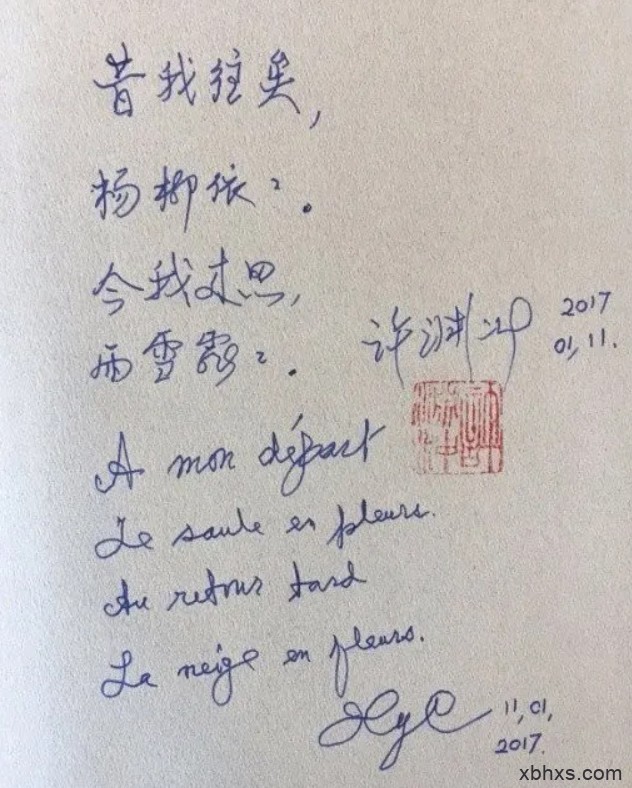 昔我往矣，
杨柳依々。
今我来思，
雨雪霏々。
许渊冲
2017
01,11.
A mon départ
Le saule en pleurs.
Au retour tard
La neige en fleurs.
XYC
11,01,
2017.
xbhxs.com